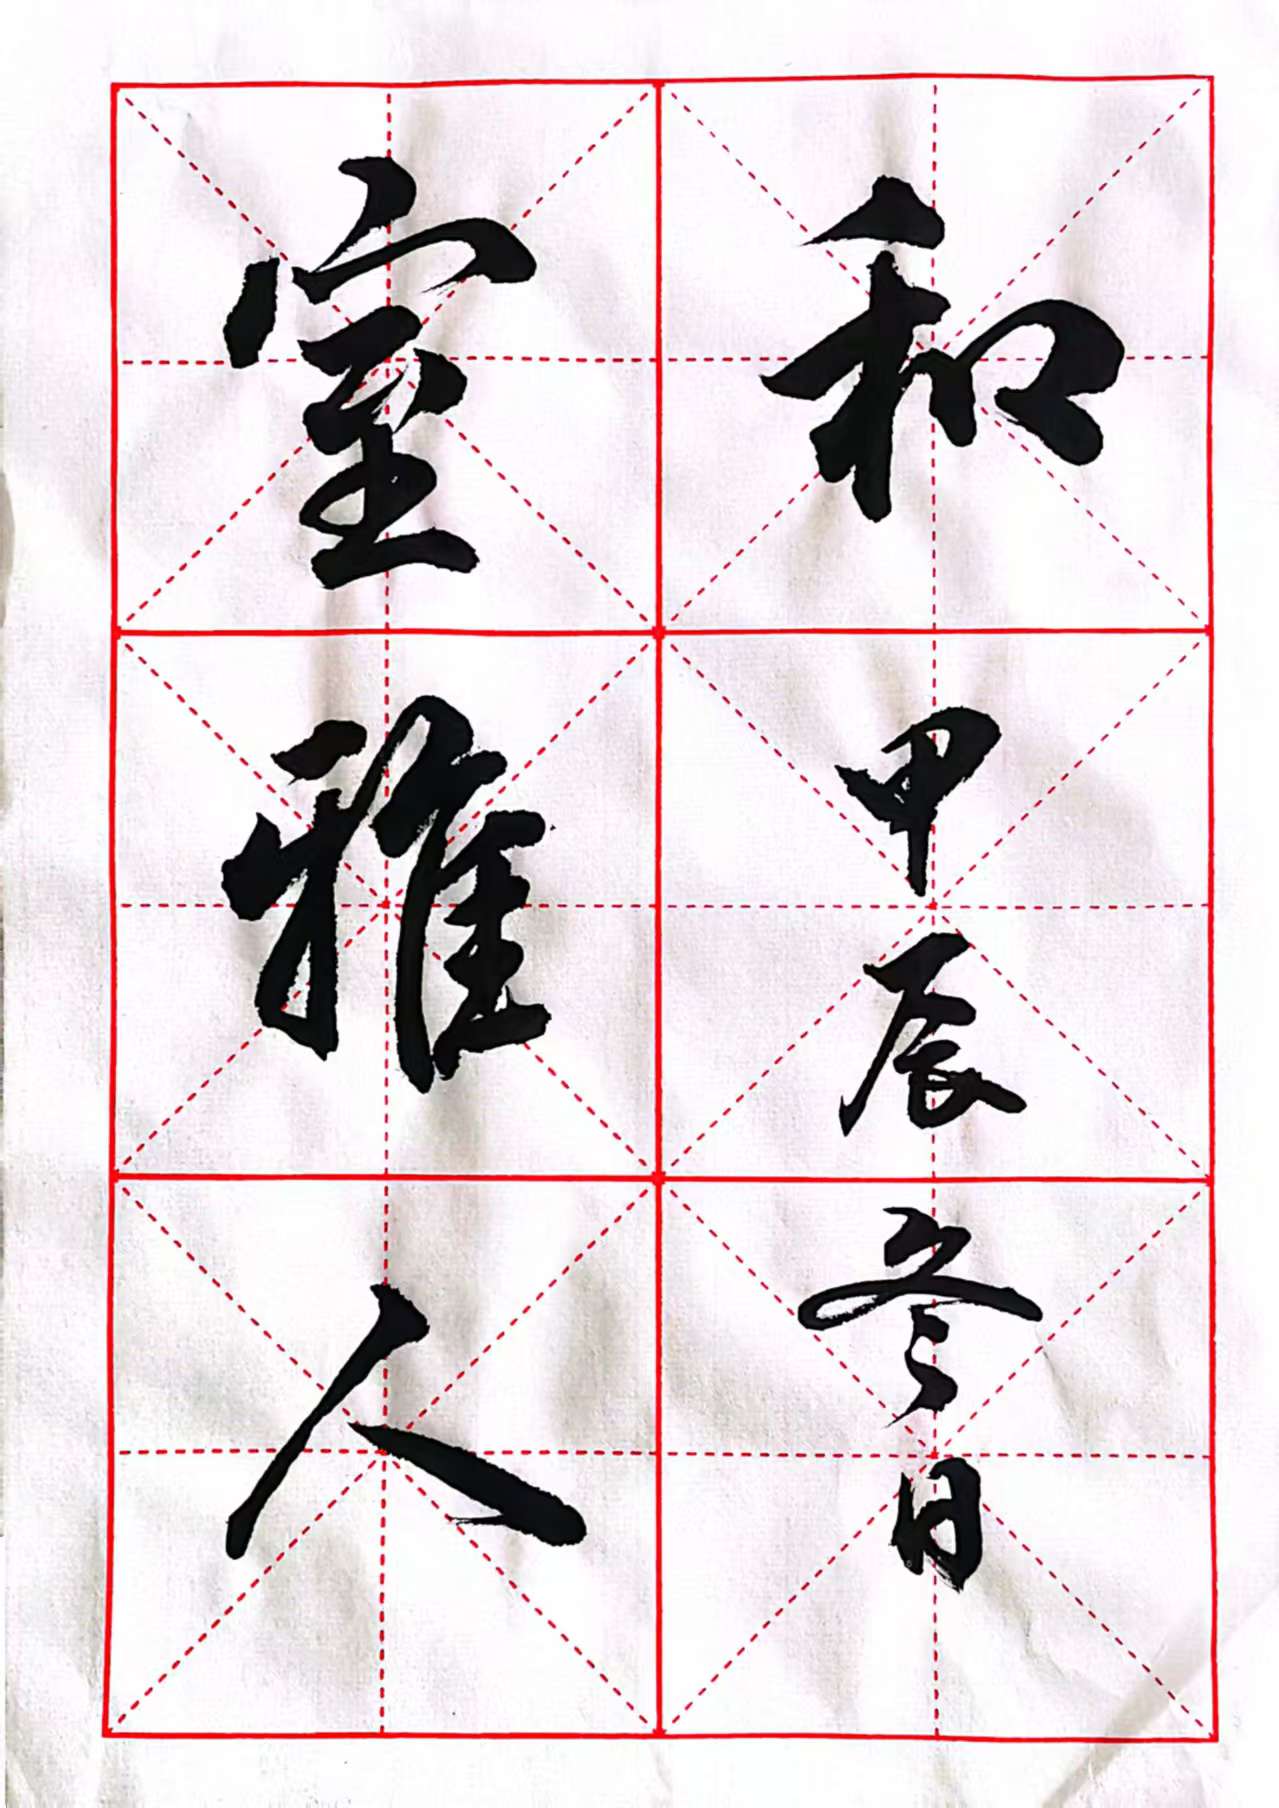 室雅人
和甲辰冬日